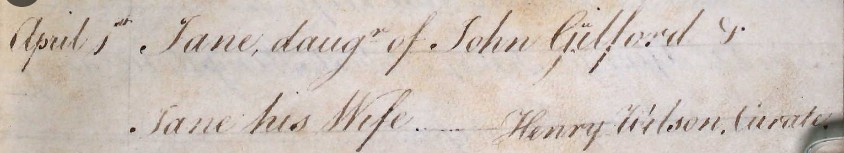 April 1st Jane, daugr of John Gilford &
Jane his Wife. — Henry Wilson, Curate.